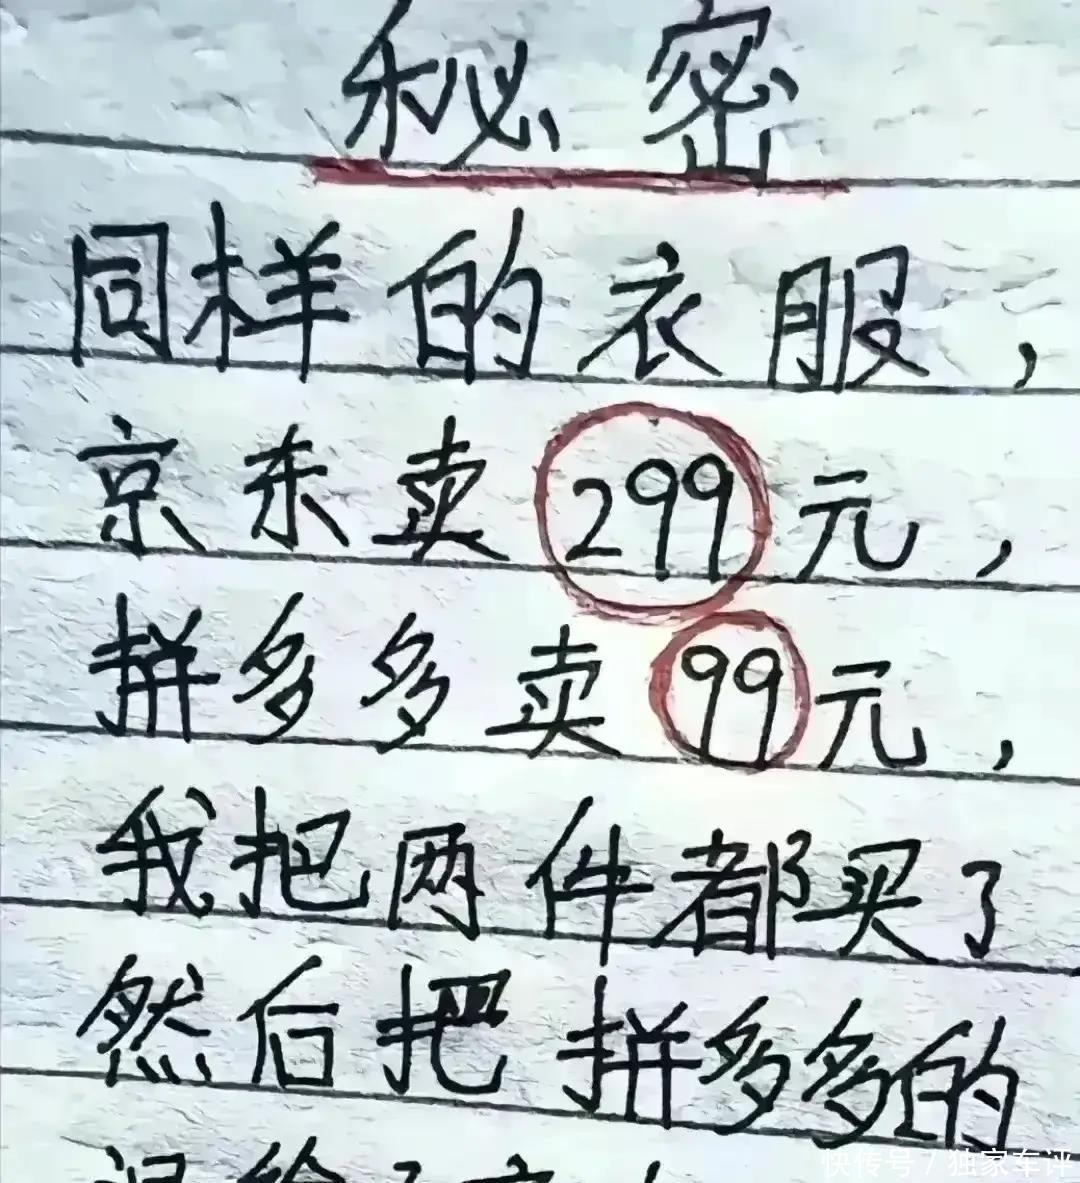 秘密
同样的衣服，
京东卖299元，
拼多多卖99元，
我把两件都买了
然后把拼多多的
快传号 / 独家车评